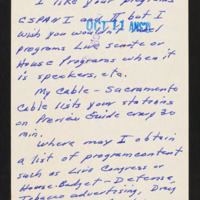 I like your programs
CSPAN I and II but I
wish you wouldn't
OCT 11 ANS'D
programs Live senate or
House Programs when it
is speakers, etc.
My Cable - Sacramento
Cable lists your stations
on Preview Guide every 30
min.
Where may I obtain
a list of program content
such as Live Congress or
House-Budget-Defense,
Tobacco advertising, Drug